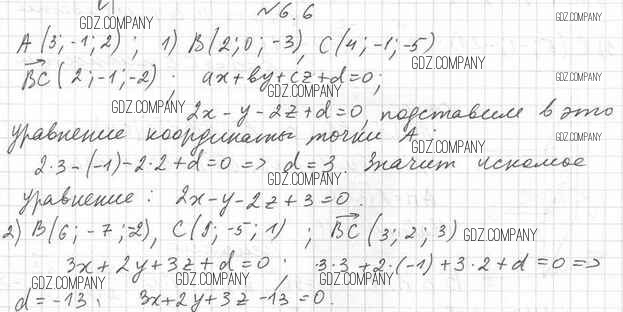 №6.6
A(3;-1;2); 1) B(2;0;-3), C(4;-1;-5)
BC(2;-1;-2). ax+by+cz+d=0;
2x-y-2z+d=0, подставим в это
уравнение координаты точки A:
2·3-(-1)-2·2+d=0 => d=3. Значит искомое
уравнение: 2x-y-2z+3=0.
2) B(6;-7;-2), C(9;-5;1); BC(3;2;3)
3x+2y+3z+d=0; 3·3+2·(-1)+3·2+d=0 =>
d=-13; 3x+2y+3z-13=0.
GDZ.COMPANY
GDZ.COMPANY
GDZ.COMPANY
GDZ.COMPANY
GDZ.COMPANY
GDZ.COMPANY
GDZ.COMPANY
GDZ.COMPANY
GDZ.COMPANY
GDZ.COMPANY
GDZ.COMPANY
GDZ.COMPANY
GDZ.COMPANY